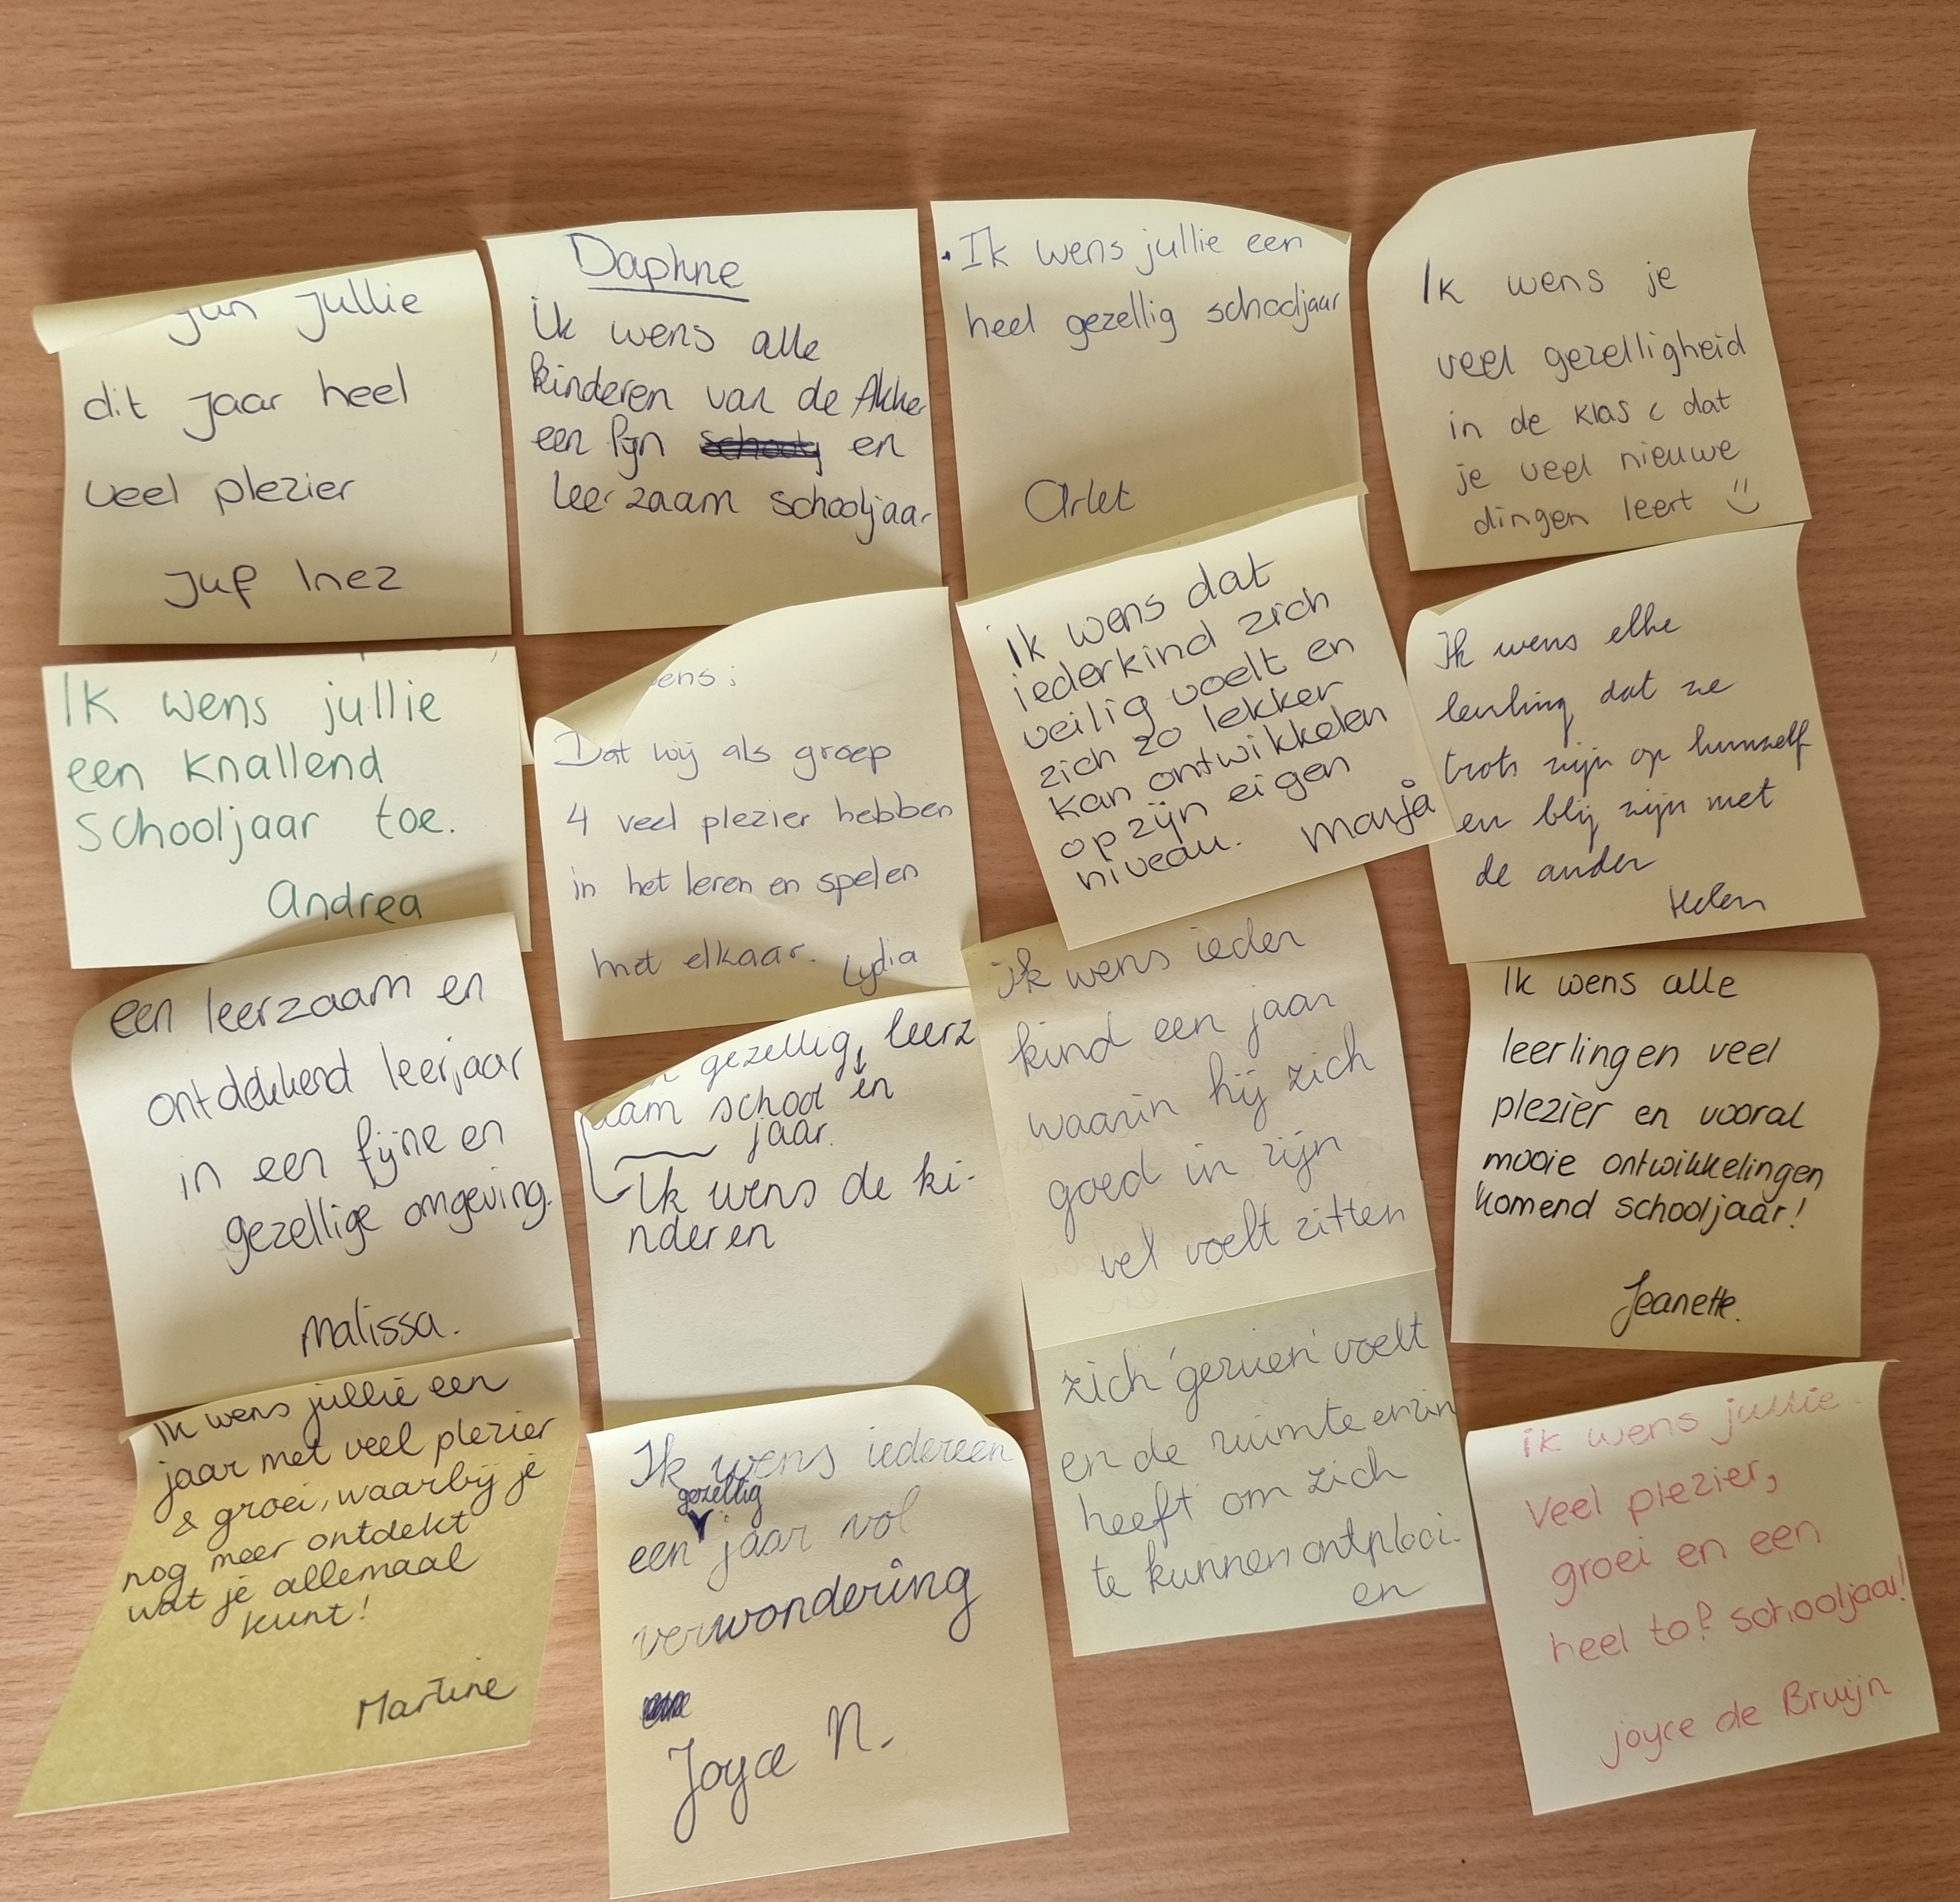 jullie
dit jaar heel
veel plezier
Juf Inez
Daphne
Ik wens alle
kinderen van de Akker
een fijn en
leerzaam schooljaar
Ik wens jullie een
heel gezellig schooljaar
Arlet
Ik wens je
veel gezelligheid
in de klas & dat
je veel nieuwe
dingen leert
Ik wens jullie
een knallend
schooljaar toe.
Andrea
ens:
Dat wij als groep
4 veel plezier hebben
in het leren en spelen
met elkaar. Lydia
ik wens dat
iederkind zich
veilig voelt en
zich zo lekker
kan ontwikkelen
op zijn eigen
niveau. Marja
Ik wens elke
leerling dat ze
trots zijn op hunzelf
en blij zijn met
de ander
Helen
een leerzaam en
ontdekkend leerjaar
in een fijne en
gezellige omgeving.
Malissa.
gezellig, leerz
aam school en
jaar.
Ik wens de ki-
nderen
ik wens ieder
kind een jaar
waarin hij zich
goed in zijn
vel voelt zitten
zich 'gezien' voelt
en de ruimte en zin
heeft om zich
te kunnen ontplooi-
en
Ik wens alle
leerlingen veel
plezier en vooral
mooie ontwikkelingen
komend schooljaar!
Jeanette.
Ik wens jullie een
jaar met veel plezier
& groei, waarbij je
nog meer ontdekt
wat je allemaal
kunt!
Martine
Ik wens iedereen
gezellig
een jaar vol
verwondering
Joyce N.
ik wens jullie
veel plezier,
groei en een
heel tof schooljaar!
joyce de Bruijn